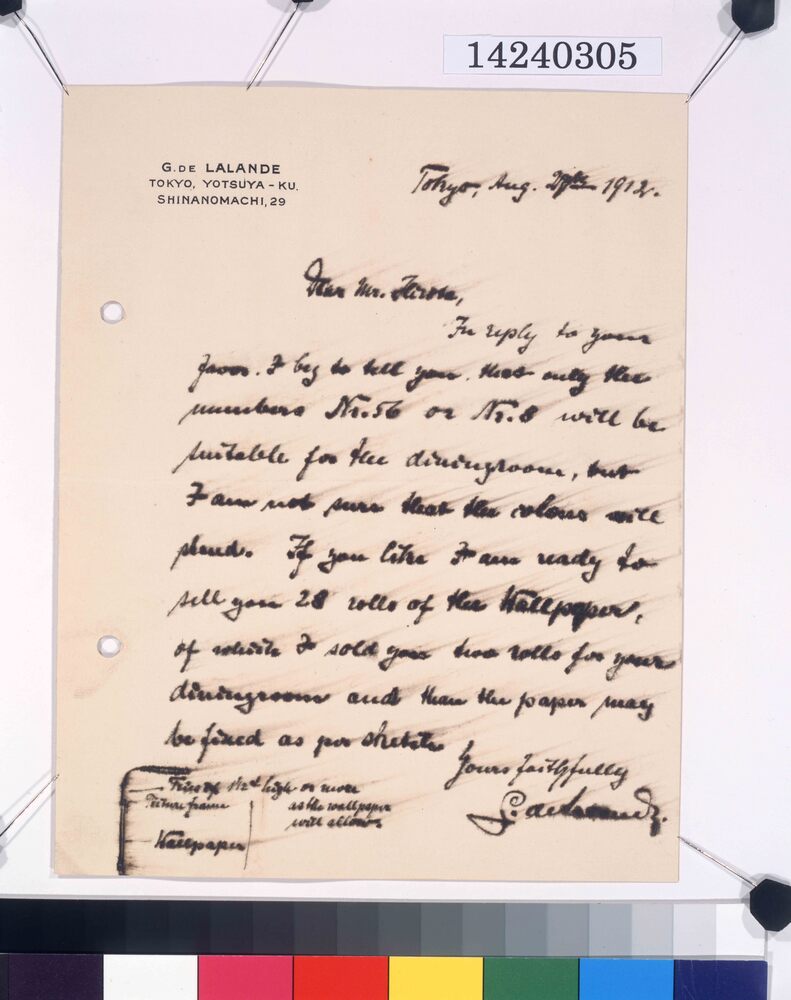 14240305
G. DE LALANDE
TOKYO, YOTSUYA-KU.
SHINANOMACHI, 29
Tokyo, Aug. 1912.
Dear Mr. Hirose,
In reply to your
favor. I beg to tell you. that only the
numbers Nr. 56 or Nr. 8 will be
suitable for the diningroom, but
I am not sure that the colour will
stand. If you like I am ready to
sell you 28 rolls of the Wallpaper,
of which I sold you two rolls for your
diningroom and than the paper may
be fixed as per sketch
Yours faithfully
G. de Lalande.
high or more
Picture frame as the wallpaper
will allow
Wallpaper